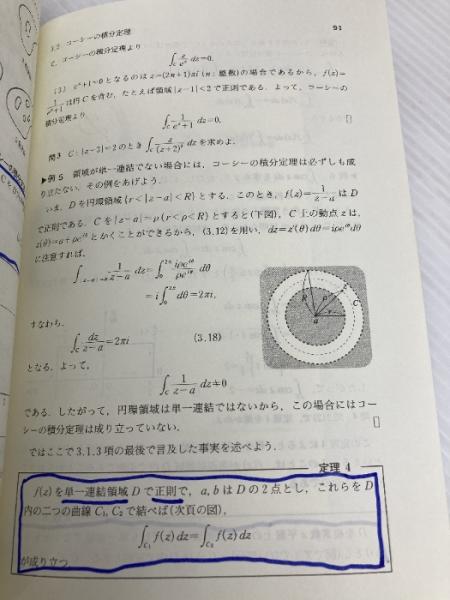 3.2 コーシーの積分定理
91
て，コーシーの積分定理より
∫_C z/e^z dz=0.
(3) e^z+1=0 となるのは z=(2n+1)πi (n：整数)の場合であるから，f(z)=
1/(e^z+1) は円 C を含む，たとえば領域 |z-1|<2 で正則である．よって，コーシーの
積分定理より
∫_C 1/(e^z+1) dz=0.
問3 C：|z-2|=2 のとき ∫_C z/(z+2)² dz を求めよ．
▶例 5 領域が単一連結でない場合には，コーシーの積分定理は必ずしも成
り立たない．その例をあげよう．
いま，D を円環領域 {r<|z-a|<R} とする．このとき，f(z)=1/(z-a) は D
で正則である．C を |z-a|=ρ(r<ρ<R) とすると(下図)，C 上の動点 z は，
z(θ)=a+ρe^{iθ} とかくことができるから，(3.12)を用い，dz=z'(θ)dθ=iρe^{iθ}dθ
に注意すれば，
∫_{|z-a|=ρ} 1/(z-a) dz=∫_0^{2π} iρe^{iθ}/ρe^{iθ} dθ
=i∫_0^{2π} dθ=2πi,
すなわち，
∫_C dz/(z-a)=2πi (3.18)
となる．よって，
∫_C 1/(z-a) dz≠0
R ρ C
r
a
である．したがって，円環領域は単一連結ではないから，この場合にはコー
シーの積分定理は成り立っていない．
ではここで 3.1.3 項の最後で言及した事実を述べよう．
定理 4
f(z) を単一連結領域 D で正則で，a, b は D の 2 点とし，これらを D
内の二つの曲線 C₁, C₂ で結べば(次頁の図)，
∫_{C₁} f(z)dz=∫_{C₂} f(z)dz
が成り立つ．